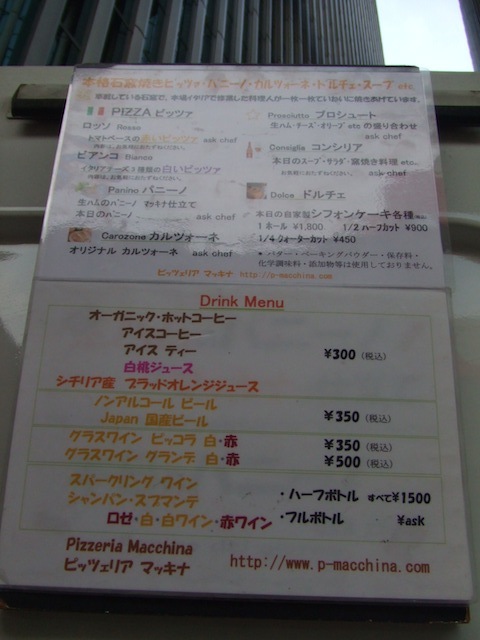 本格石窯焼きピッツァ・パニーノ・カルツォーネ・ドルチェ・スープ etc
PIZZA ピッツァ
ロッソ Rosso
トマトベースの赤いピッツァ ask chef
内容は、お気軽におたずねください。
ビアンコ Bianco
イタリアチーズ3種類の白いピッツァ
内容は、お気軽におたずねください。
Panino パニーノ
生ハムのパニーノ マッキナ仕立て
本日のパニーノ ask chef
Carozone カルツォーネ
オリジナル カルツォーネ ask chef
Prosciutto プロシュート
生ハム・チーズ・オリーブ etc の盛り合わせ
ask chef
Consiglia コンシリア
本日のスープ・サラダ・窯焼き料理 etc.
ask chef
Dolce ドルチェ
本日の自家製シフォンケーキ各種
1 ホール ¥1,800 1/2 ハーフカット ¥900
1/4 クォーターカット ¥450
バター・ベーキングパウダー・保存料・
化学調味料・添加物等は使用しておりません。
ピッツェリア マッキナ http://p-macchina.com
Drink Menu
オーガニック・ホットコーヒー
アイスコーヒー
アイス ティー ¥300 (税込)
白桃ジュース
シチリア産 ブラッドオレンジジュース
ノンアルコール ビール
Japan 国産ビール ¥350 (税込)
グラスワイン ピッコラ 白・赤 ¥350 (税込)
グラスワイン グランデ 白・赤 ¥500 (税込)
スパークリング ワイン
シャンパン・スプマンテ ・ハーフボトル すべて¥1500
ロゼ・白・白ワイン・赤ワイン ・フルボトル ¥ask
Pizzeria Macchina
ピッツェリア マッキナ http://www.p-macchina.com